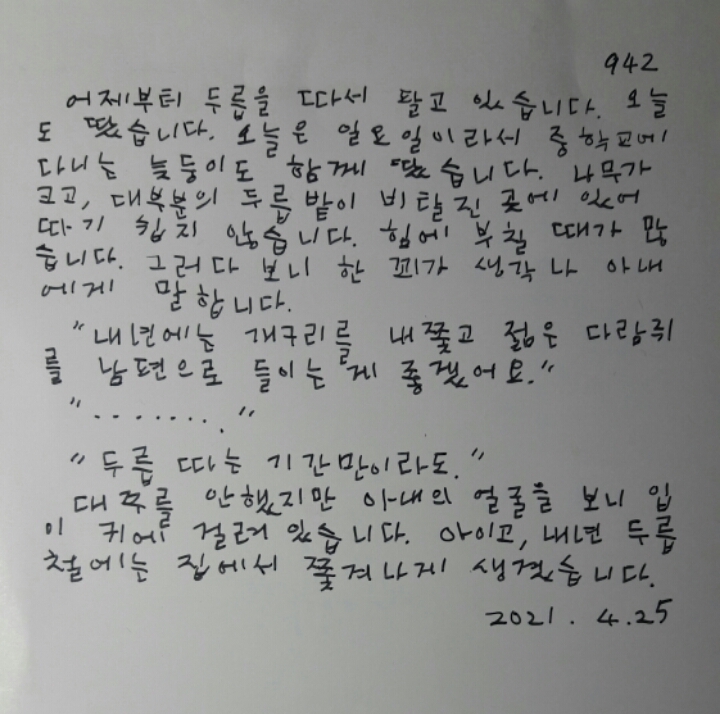 942
어제부터 두릅을 따서 팔고 있습니다. 오늘
도 땄습니다. 오늘은 일요일이라서 중학교에
다니는 늦둥이도 함께 땄습니다. 나무가
크고, 대부분의 두릅 밭이 비탈진 곳에 있어
따기 쉽지 않습니다. 힘에 부칠 때가 많
습니다. 그러다 보니 한 꾀가 생각나 아내
에게 말합니다.
"내년에는 개구리를 내쫓고 젊은 다람쥐
를 남편으로 들이는 게 좋겠어요."
"........"
"두릅 따는 기간만이라도."
대꾸를 안했지만 아내의 얼굴을 보니 입
이 귀에 걸려 있습니다. 아이고, 내년 두릅
철에는 집에서 쫓겨나게 생겼습니다.
2021. 4.25